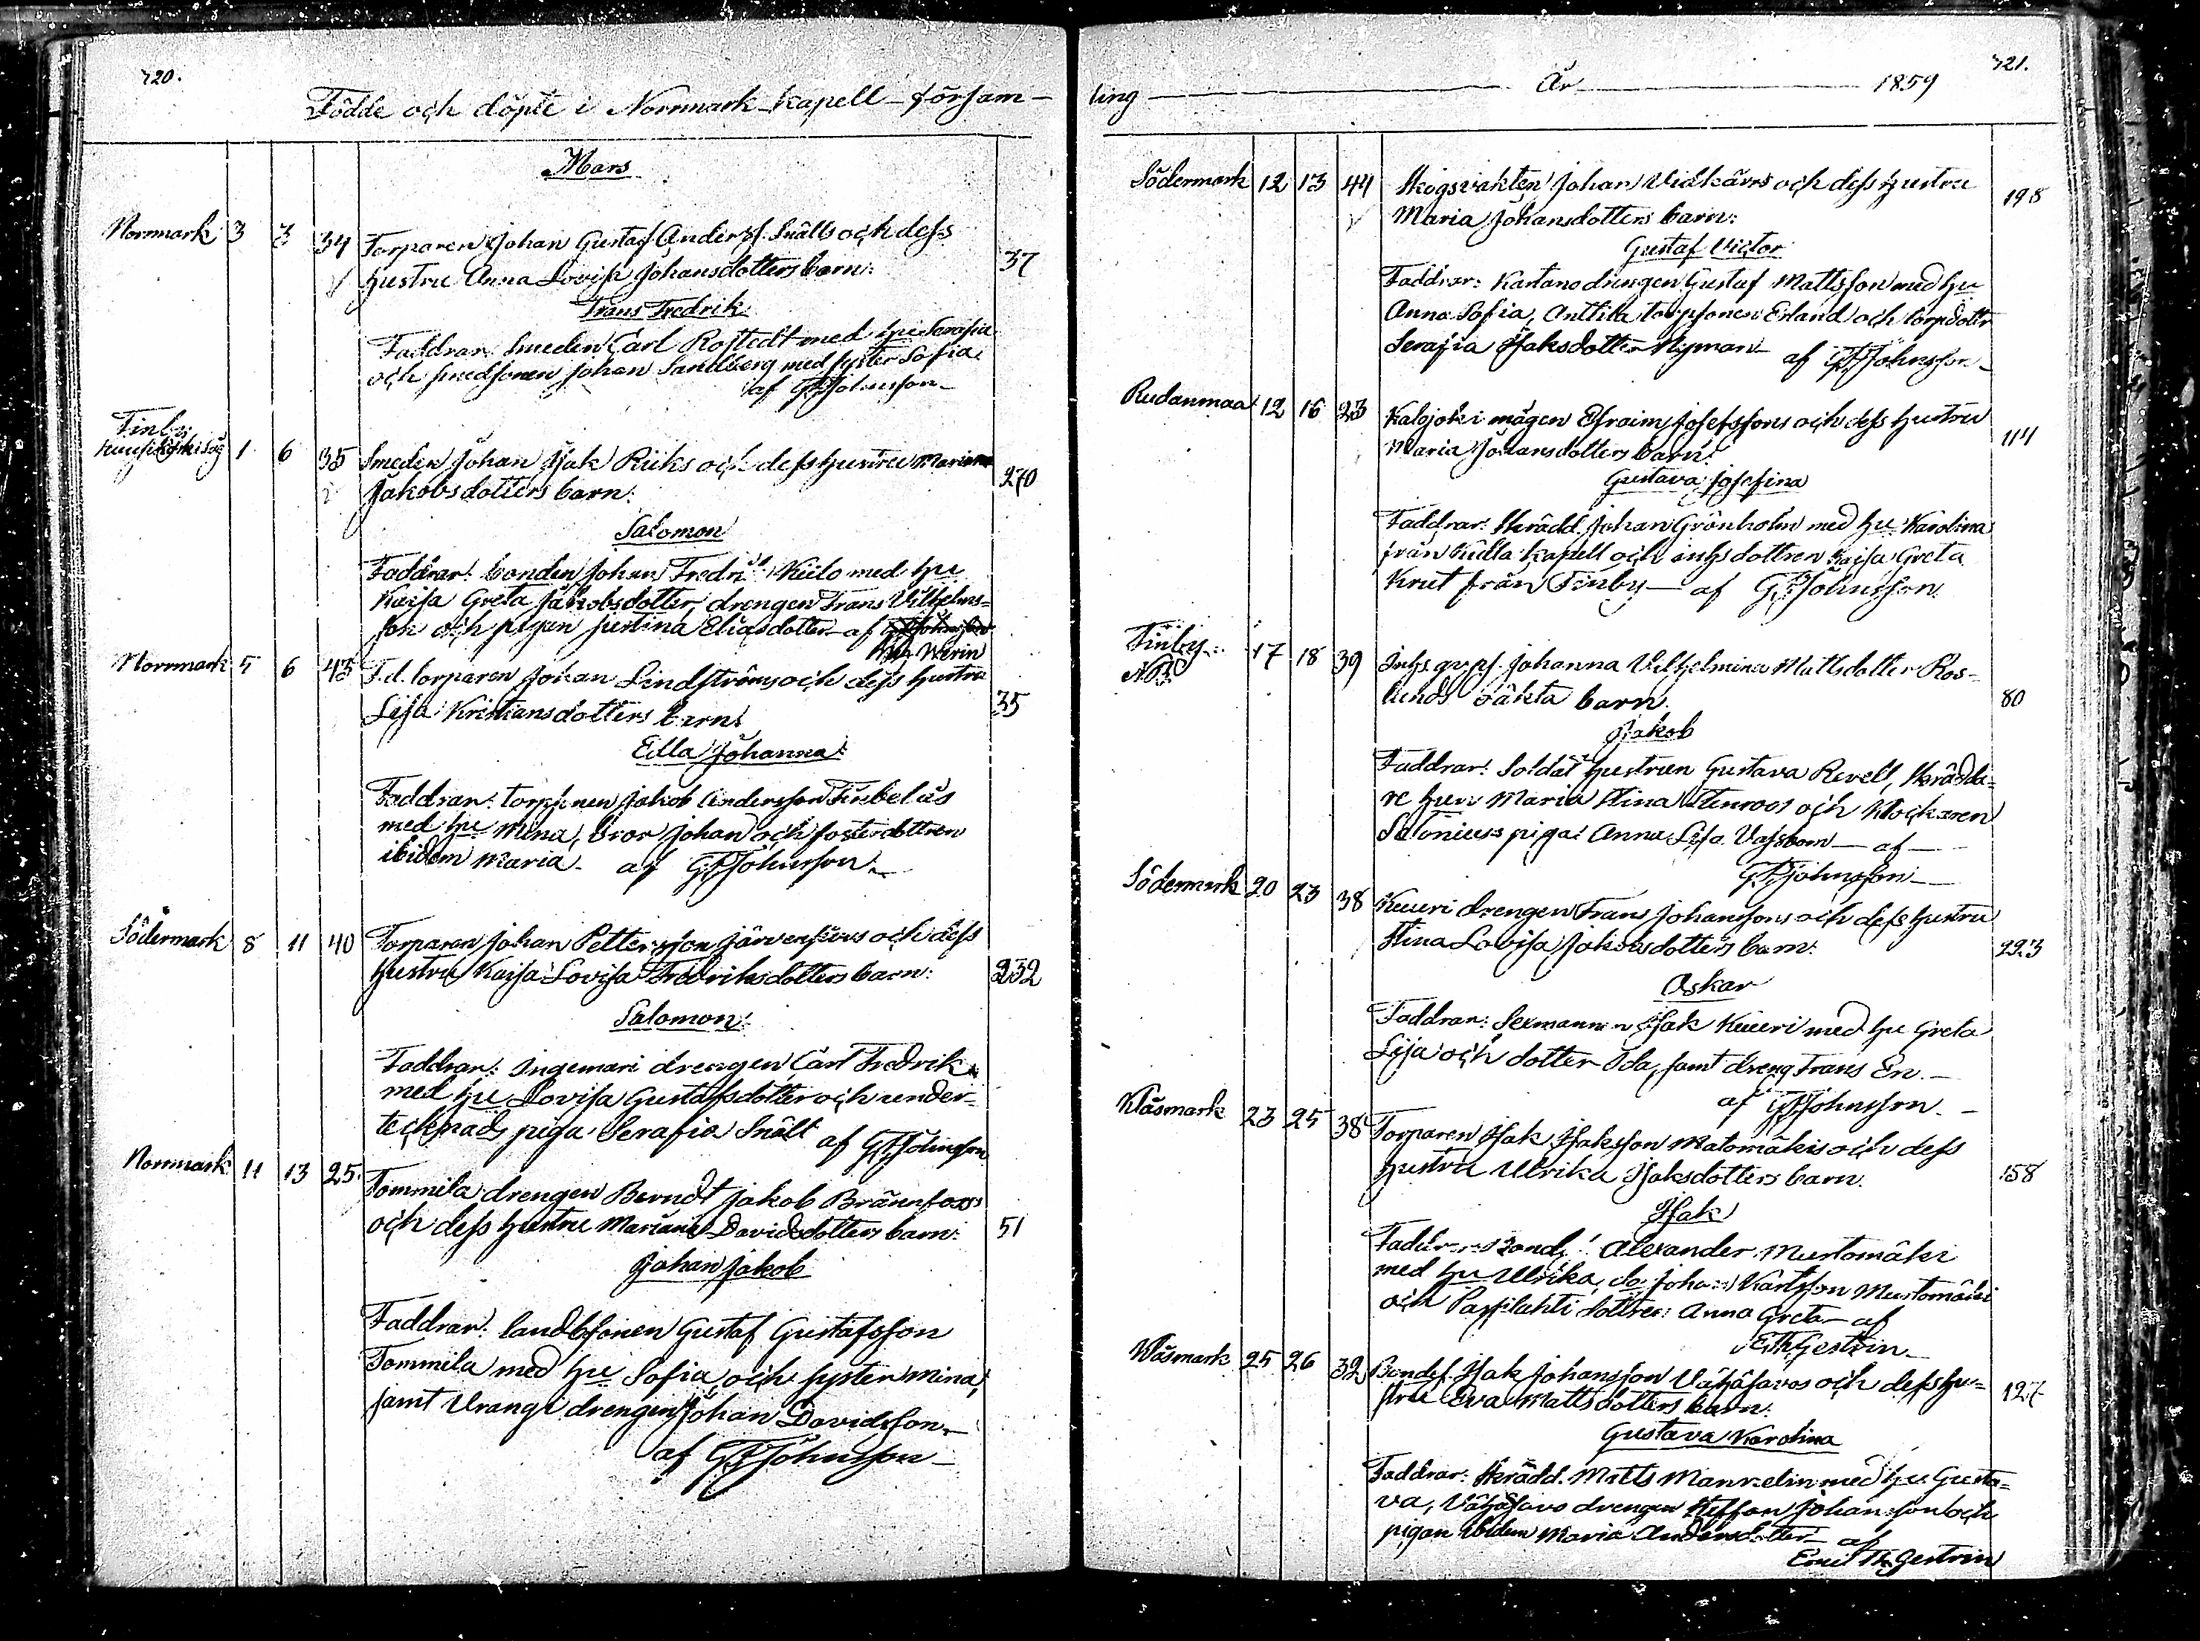 720.
Födde och döpte i Norrmark kapell försam-
Mars
Norrmark 3 3 34 Torparen Johan Gustaf Anderss. Snälls och dess 37
hustru Anna Lovisa Johansdotters barn:
Frans Fredrik
Faddrar: Smeden Carl Rostedt med hu Serafia
och smedsonen Johan Sandberg med syster Sofia
af GFJohnsson
Finby
1 6 35 Smeden Johan Isak Riiks och dess hustru Mariana 270
Jakobsdotters barn:
Salomon
Faddrar: bonden Johan Fredr. Kiilo med hu
Kaisa Greta Jakobsdotter, drengen Frans Vilhelms-
son och pigan Justina Eliasdotter af
Norrmark 5 6 43 F.d. torparen Johan Lindströms och dess hustru 35
Lisa Kristiansdotters barn:
Edla Johanna
Faddrar: torpsonen Jakob Andersson
med hu Mina, bror Johan och fosterdottren
ibidem Maria. af GFJohnsson
Södermark 8 11 40 Torparen Johan Pettersson och dess 232
hustru Kaisa Lovisa Fredriksdotters barn:
Salomon
Faddrar: Ingemari drengen Carl Fredrik
med hu Lovisa Gustafsdotter och under-
tecknads piga Serafia Snäll af GFJohnsson
Norrmark 11 13 25 Tommila drengen Berndt Jakob
och dess hustru Mariana Davidsdotters barn: 51
Johan Jakob
Faddrar: landbsonen Gustaf Gustafsson
Tommila med hu Sofia och syster Mina,
samt Vrangi drengen Johan Davidsson
af GFJohnsson
721.
ling År 1859
Södermark 12 13 44 Skogsvakten Johan och dess hustru 198
Maria Johansdotters barn:
Gustaf Victor
Faddrar: Kartano drengen Gustaf Mattsson med hu
Anna Sofia, Anttila torpsonen Erland och torpdottr
Serafia Isaksdotter Nyman af GFJohnsson
Rudanmaa 12 16 23 Kalojoki mågen Efraim Josefssons och dess hustru 114
Maria Johansdotters barn:
Gustava Josefina
Faddrar: Skrädd. Johan Grönholm med hu Karolina
från Kulla kapell och inhs dottren Kaisa Greta
Knut från Finby af GFJohnsson
Finby 17 18 39 Inhs Johanna Vilhelmina Mattsdotter Ros-
NB
lunds oäkta barn. 80
Jakob
Faddrar: Soldat hustrun Gustava Revell, Skrädda-
re hun Maria Stina Stenroos och klockaren
Saloniuss piga Anna Lisa af
GFJohnsson
Södermark 20 23 38 Kuuri drengen Frans Johanssons och dess hustru
Stina Lovisa Jakobsdotters barn: 223
Oskar
Faddrar: Sexmannen Isak Kuuri med hu Greta
Lisa och dotter Ida, samt dreng Frans En.
af GFJohnsson
Klåsmark 23 25 38 Torparen Isak Isaksson Matomäkis och dess
hustru Ulrika Isaksdotters barn. 158
Isak
Faddrar: Alexander Mustomäki
med hu Ulrika, do Johan Karlsson Mustomäki
och dottren Anna Greta af
Gestrin
Klåsmark 25 26 32 Bondes. Isak Johansson Vähäsavos och dess hu- 127
stru Eva Mattsdotters barn:
Gustava Karolina
Faddrar: Skrädd. Matts Manselin med hu Gusta-
va, Vähäsavo drengen Steffan Johansson och
pigan ibidem Maria Andersdotter af
Emil Th Gestrin